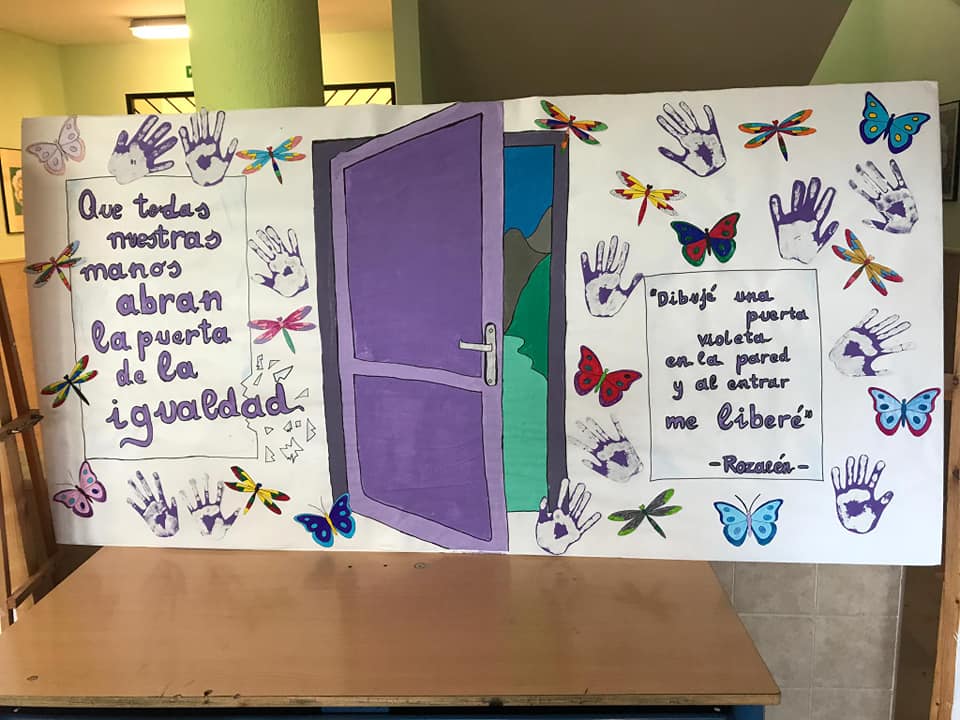 Que todas
nuestras
manos
abran
la puerta
de la
igualdad
"Dibujé una
puerta
violeta
en la pared
y al entrar
me liberé"
- Rozalén -